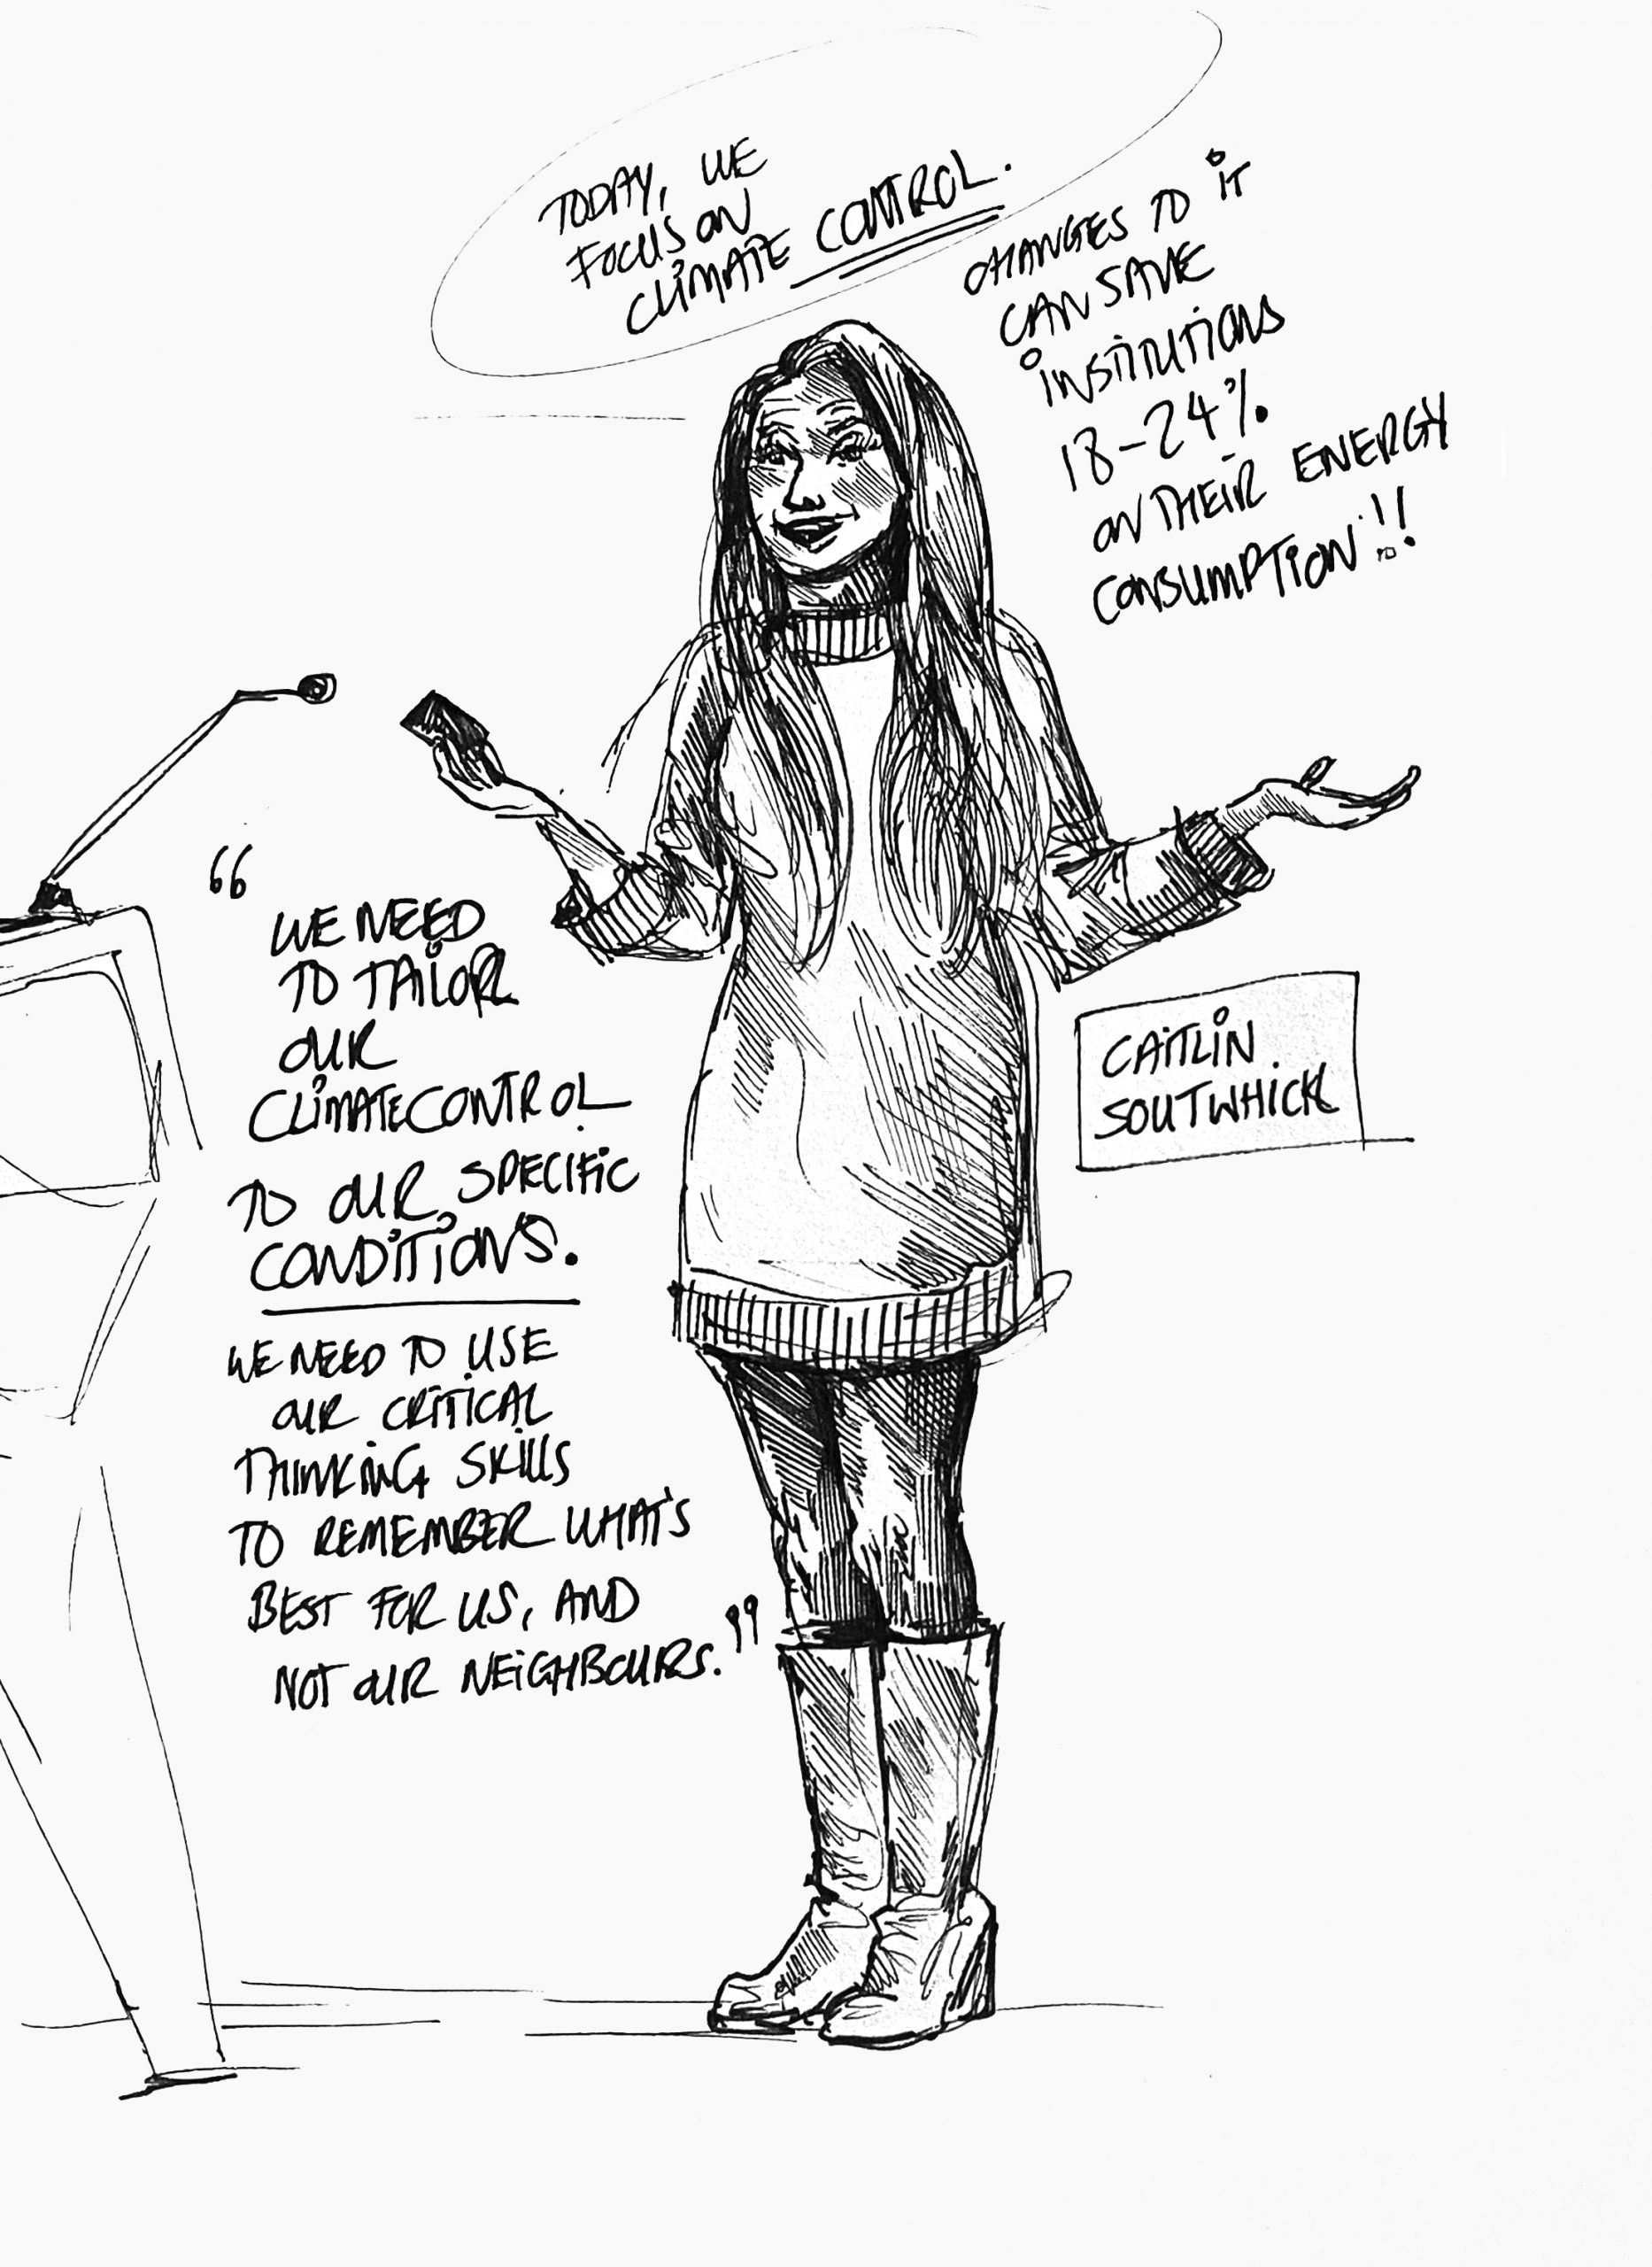 TODAY, WE
FOCUS ON
CLIMATE CONTROL.
CHANGES TO IT
CAN SAVE
INSTITUTIONS
18-24%
ON THEIR ENERGY
CONSUMPTION!!
“
WE NEED
TO TAILOR
OUR
CLIMATECONTROL
TO OUR SPECIFIC
CONDITIONS.
WE NEED TO USE
OUR CRITICAL
THINKING SKILLS
TO REMEMBER WHAT'S
BEST FOR US, AND
NOT OUR NEIGHBOURS.”
CAITLIN
SOUTWHICK